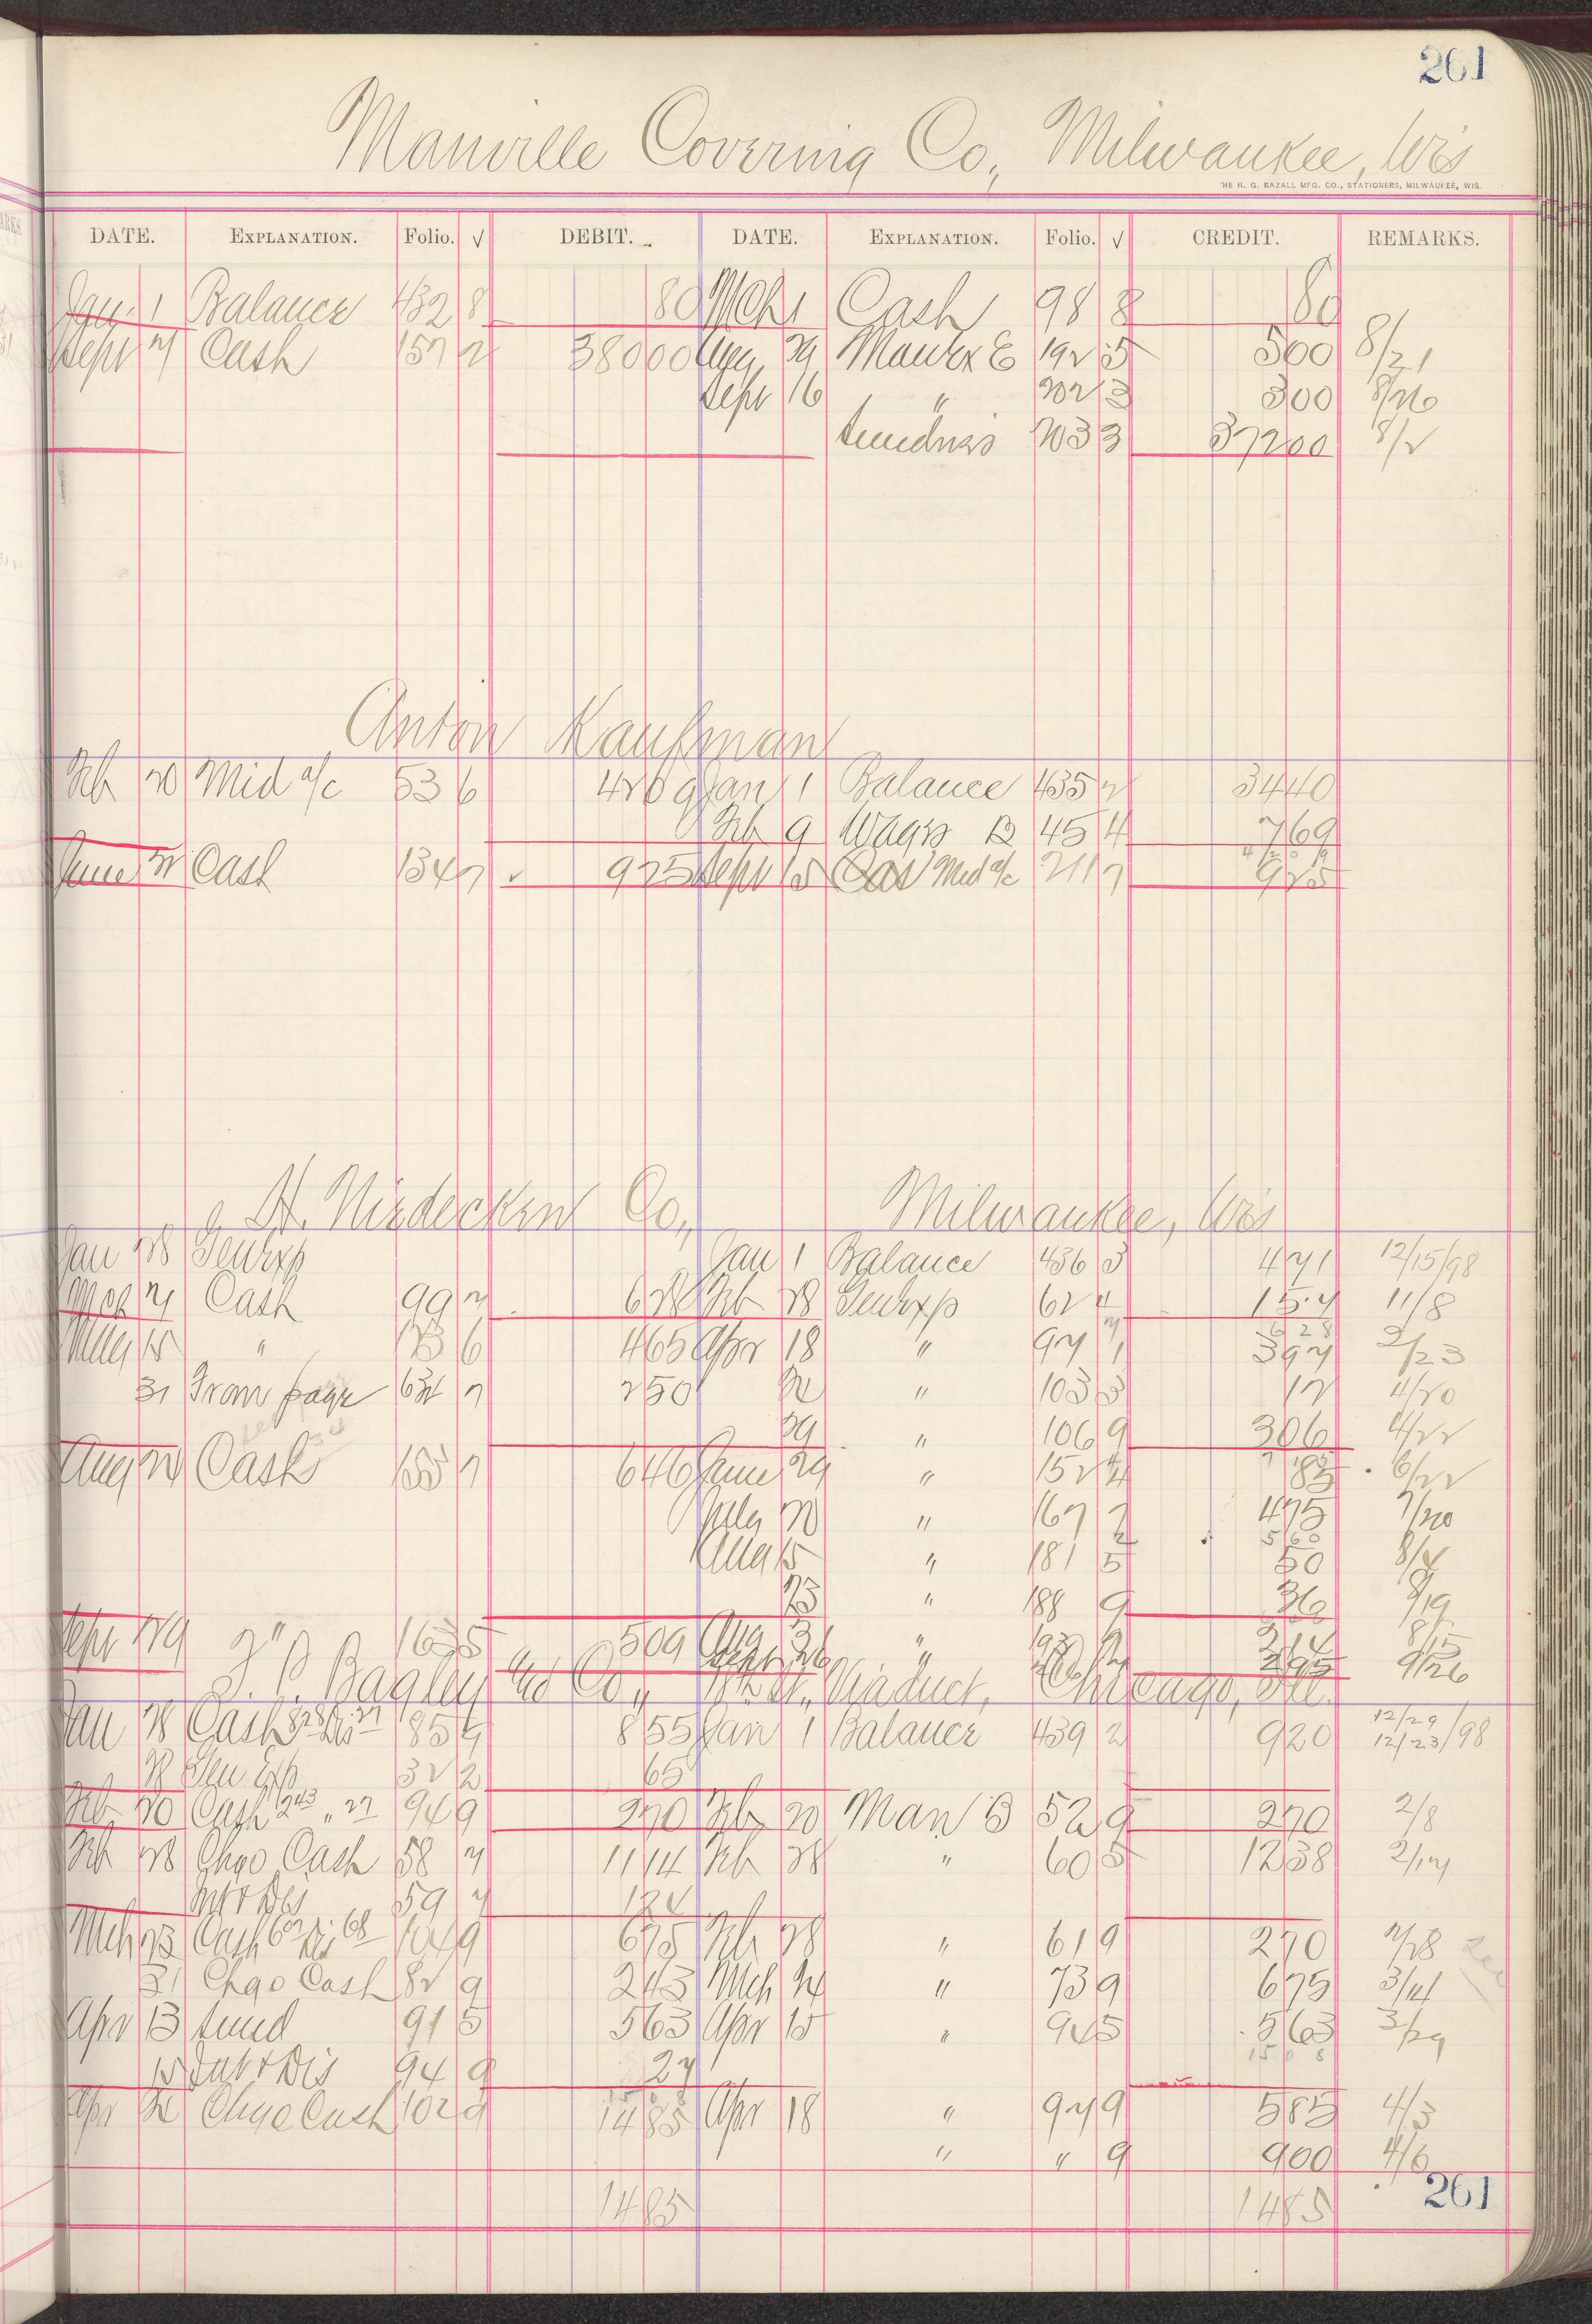 261
Manville Covering Co., Milwaukee, Wis
THE H. G. RAZALL MFG. CO., STATIONERS, MILWAUKEE, WIS.
DATE. EXPLANATION. Folio. √ DEBIT. DATE. EXPLANATION. Folio. √ CREDIT. REMARKS.
Jan. 1 Balance 432 8 80 Mch 1 Cash 98 8 80
Sept 21 Cash 157 2 38000 Aug 29 192 5 500 8/21
Sept 16 " 202 3 300 8/26
Sundries 203 3 37200 8/2
Anton Kaufman
Feb 20 Mid a/c 53 6 4209 Jan 1 Balance 435 2 3440
Feb 9 Wages B 45 4 769
4209
June Cash 134 7 925 Sept 15 Mid a/c 211 7 925
H. Niedecken Co., Milwaukee, Wis
Jan 28 Genexp Jan 1 Balance 436 3 471 12/15/98
Mch 21 Cash 99 2 628 Feb 28 Genexp 62 4 157 11/8
628
May 15 " 123 6 465 Apr 18 " 97 1 397 2/23
31 From page 632 7 250 " 103 3 12 4/20
29 " 106 9 306 4/22
Aug Cash 155 7 646 June 29 " 152 4 85 6/22
July 20 " 167 2 475 7/20
560
Aug 15 " 181 5 50 8/4
23 " 188 9 36 8/19
Sept 29 " 163 5 509 Aug 31 " 214 8/15
Sept 26 295 9/26
F. P. Bagley & Co., Viaduct, Chicago, Ill.
Jan 28 Cash 828 Dis 27 85 4 855 Jan 1 Balance 439 2 920 12/29 12/23/98
28 Gen Exp 32 2 65
Feb 20 Cash 243 " 27 94 9 270 Feb 20 Man B 52 9 270 2/8
Feb 28 Chgo Cash 58 7 1114 Feb 28 " 60 5 1238 2/17
Int & Dis 59 7 124
Mch 23 Cash 607 Dis 68 104 9 675 Feb 28 " 61 9 270 2/28
31 Chgo Cash 82 9 243 Mch 14 " 73 9 675 3/4
Apr 13 Sund 91 5 563 Apr 15 " 94 5 563 3/29
1508
15 Int & Dis 94 9 27
Apr Chgo Cash 102 9 1485 Apr 18 " 97 9 585 4/3
" " 9 900 4/6
1485 1485
261